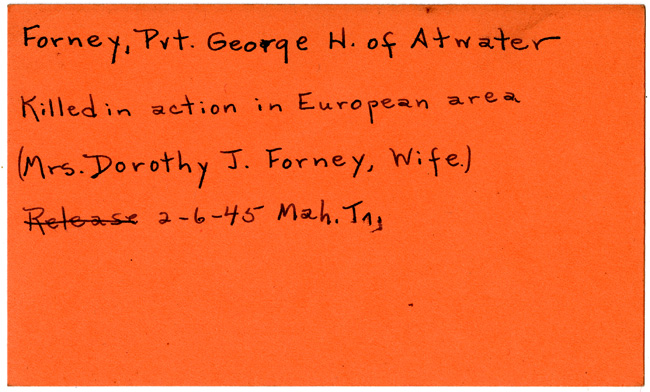 Forney, Pvt. George H. of Atwater
Killed in action in European area
(Mrs. Dorothy J. Forney, Wife.)
Release 2-6-45 Mah. Tn,